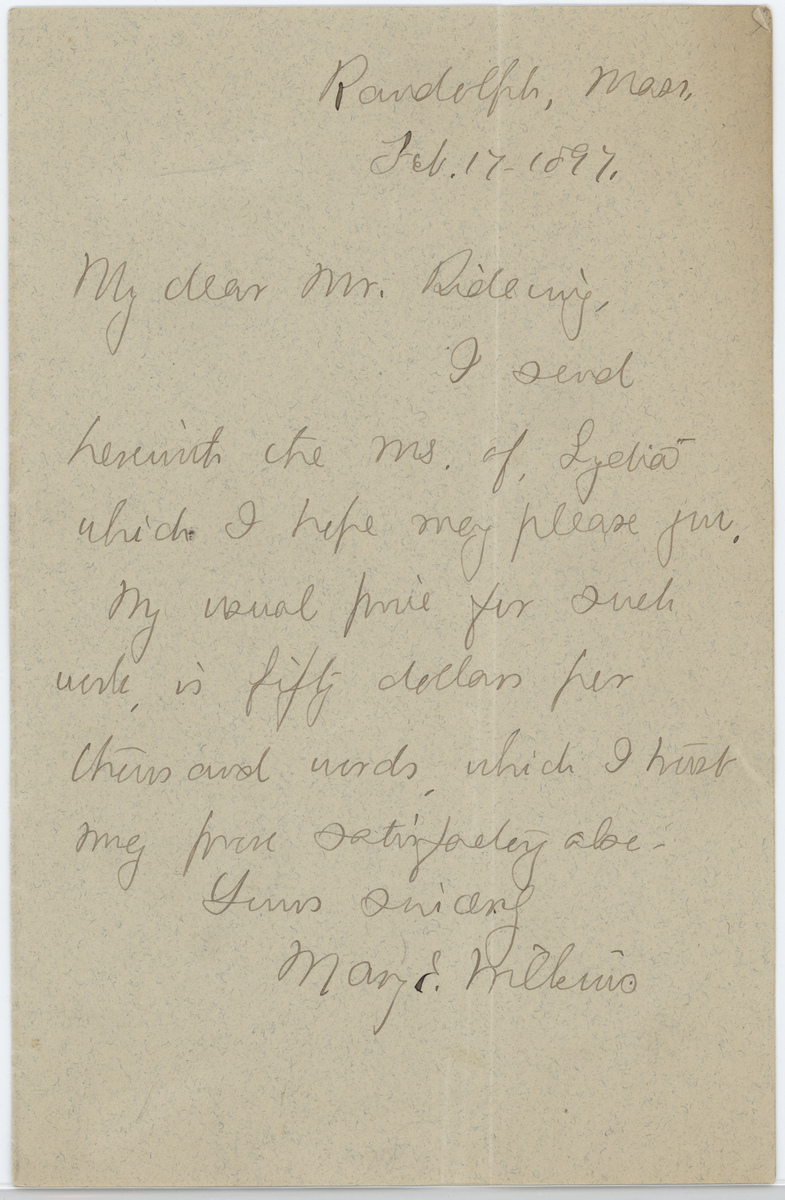 Randolph, Mass,
Feb. 17 - 1897.
My dear Mr. Rideing,
I send
herewith the Ms. of, Lydia"
which I hope may please you.
My usual price for such
work, is fifty dollars per
thousand words, which I trust
may prove satisfactory also -
Yours sincerely
Mary E. Wilkins